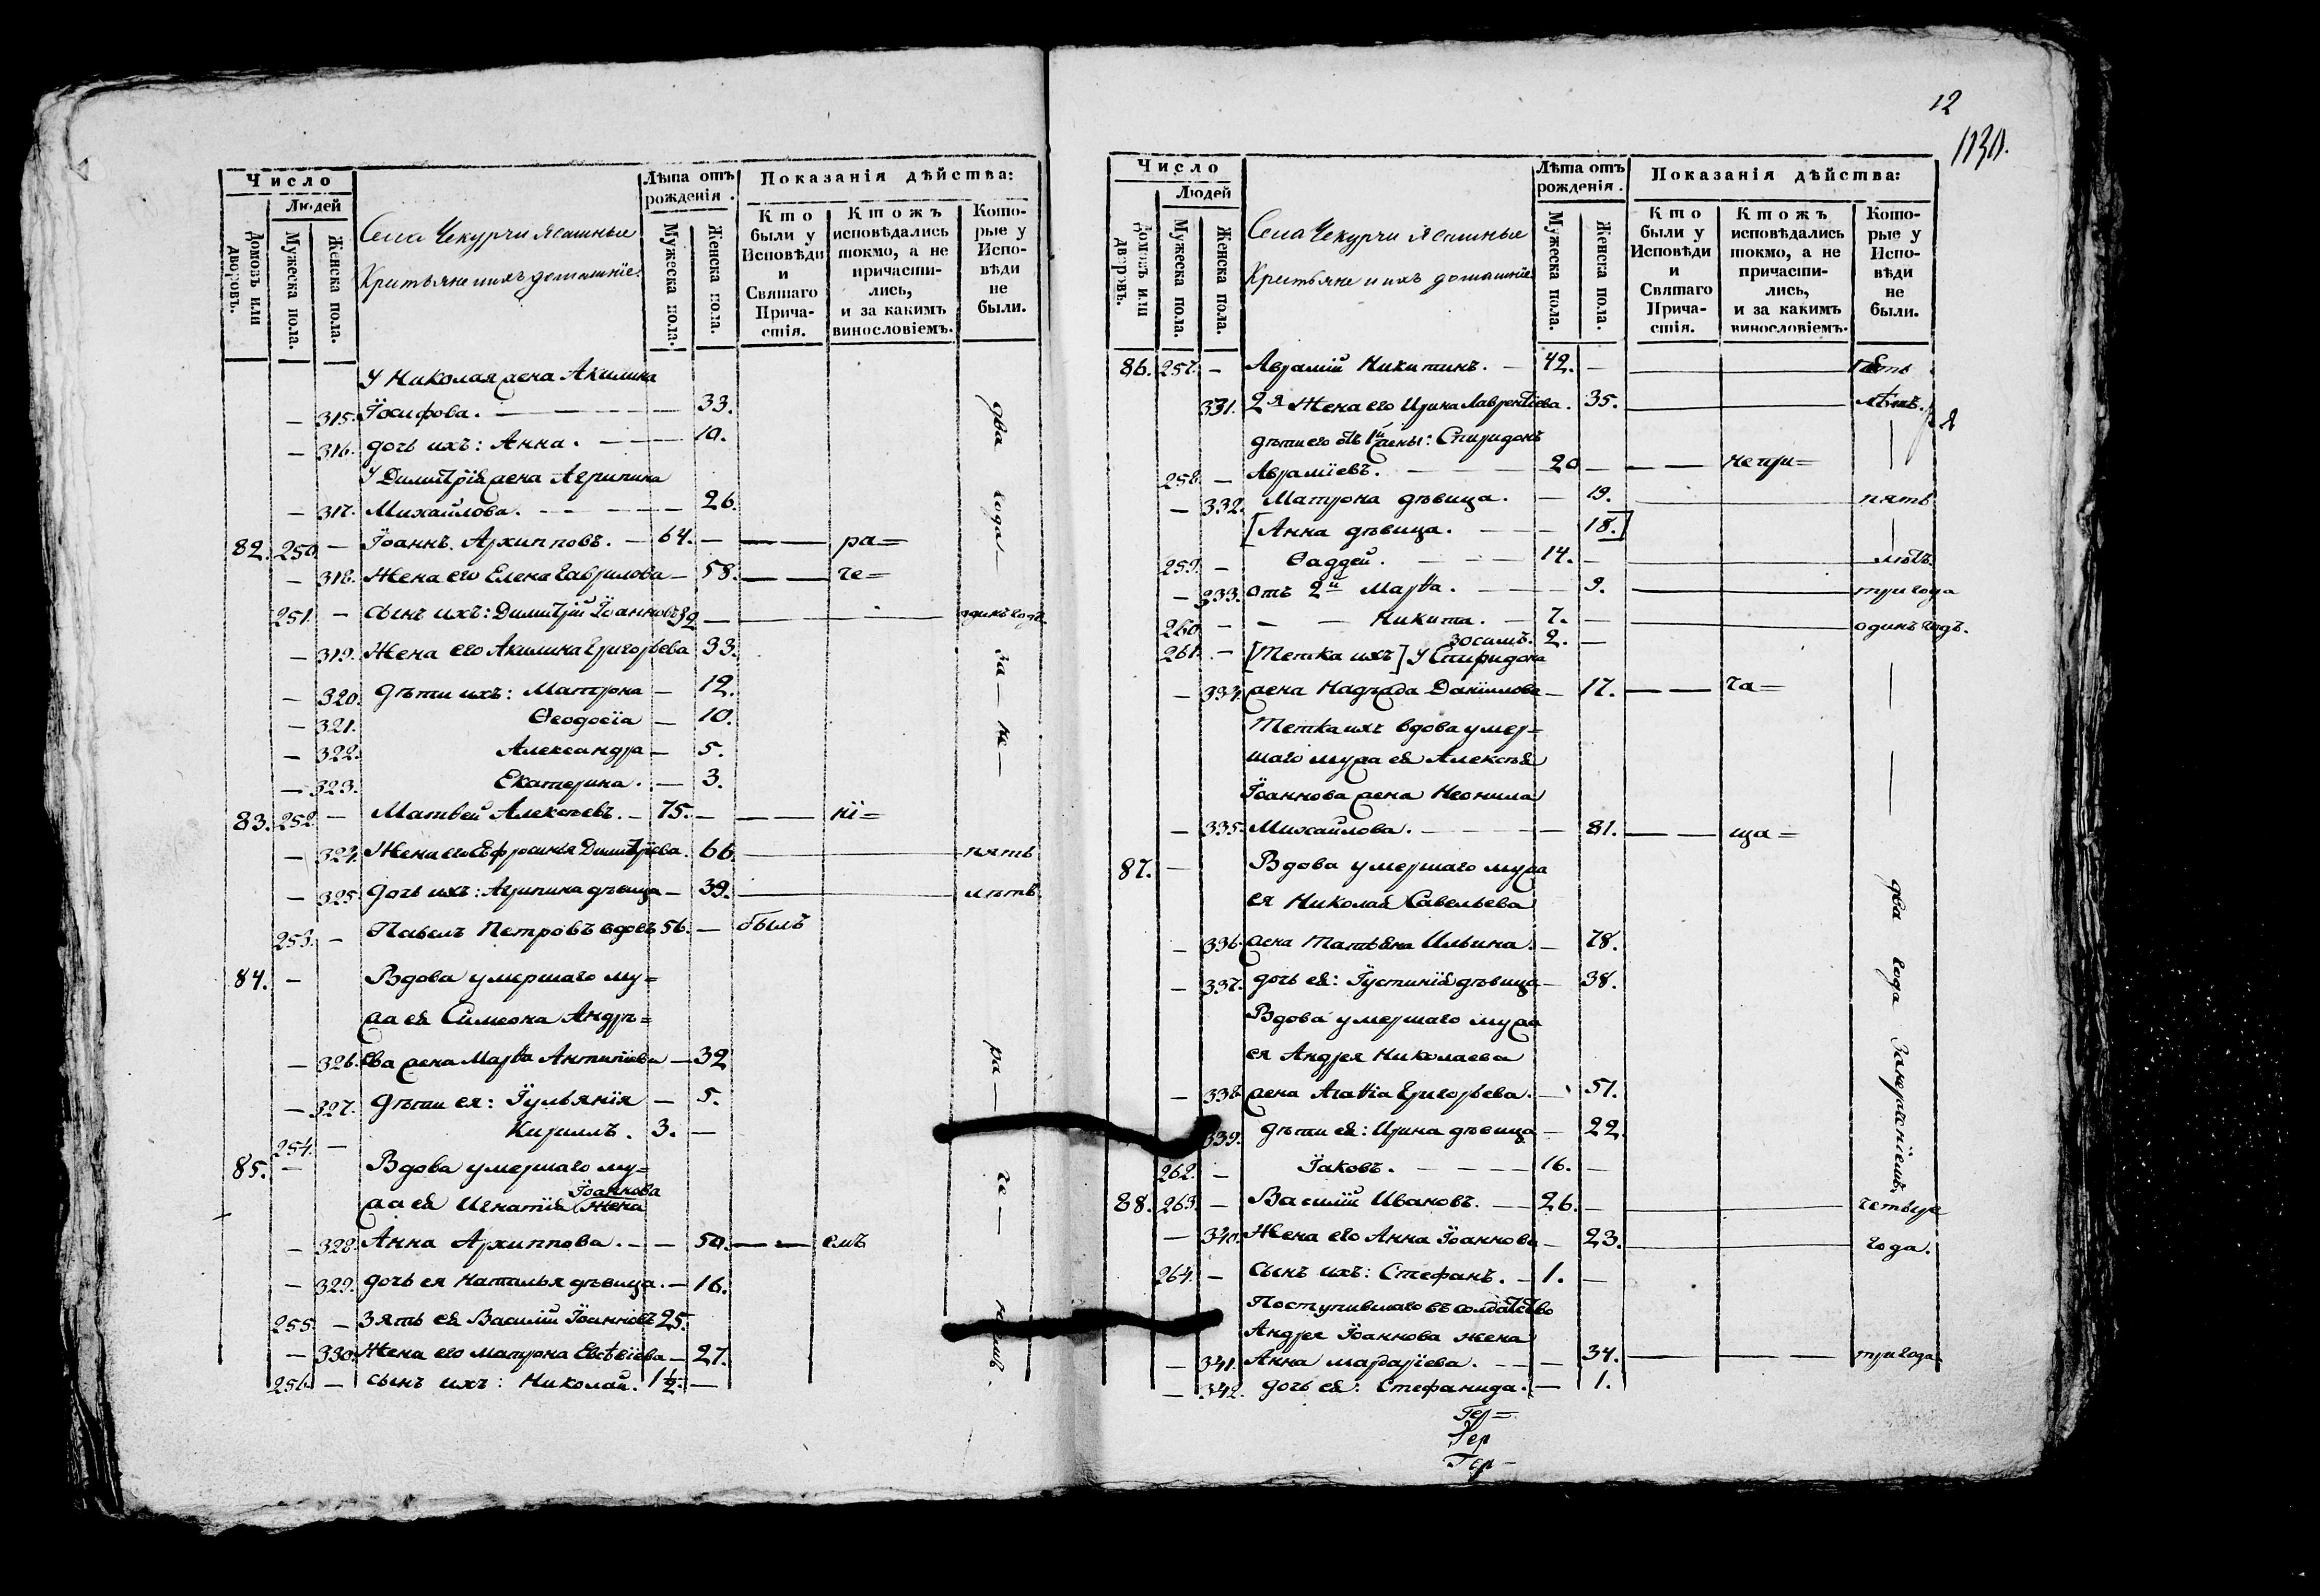 Число
Людей
Домовъ или дворовъ.
Мужеска пола.
Женска пола.
Села Чекурчи Ясашные
Кристьяне и ихъ домашніе.
Лѣта отъ рожденія.
Мужеска пола.
Женска пола.
Показанія дѣйства:
Кто были у Исповѣди и Святаго Причастія.
Ктожъ исповѣдались токмо, а не причастились, и за какимъ винословіемъ.
Которые у Исповѣди не были.
У Николая жена Акилина
— 315. Іосифова. — 33.
— 316. дочь ихъ: Анна. — 10.
У Димитрія жена Агрипина
— 317. Михайлова. — 26.
82. 250. — Іоаннъ Архипповъ. — 64. — ра=
— 318. Жена его Елена Гаврилова — 58. — че=
251. — сынъ ихъ: Димитрій Іоанновъ 32 — одинъ годъ
— 319. Жена его Акилина Григорьева 33.
— 320. дѣти ихъ: Матрона — 12.
— 321. Ѳеодосіа — 10.
— 322. Александра — 5.
— 323. Екатерина. — 3.
83. 252. — Матвей Алексѣевъ. — 75. — ні=
— 324. Жена его Ефросинья Димитріева. 66. — пять
— 325. дочь ихъ: Агрипина дѣвица — 39. — лѣтъ
253. — Павелъ Петровъ вдовъ 56. — былъ
84. — Вдова умершаго му=
жа ея Симеона Андрѣ=
— 326. ева жена Марѳа Антипіева — 32
— 327. дѣти ея: Іульянія — 5.
254. — Кириллъ. 3. —
85. — Вдова умершаго му=
Іоаннова
жа ея Игнатія жена
— 328. Анна Архиппова. — 50. — емъ
— 329. дочь ея Наталья дѣвица. — 16.
255. — Зять ея Василій Іоанновъ 25.
— 330. Жена его Матрона Евсѣвіева — 27.
256. — сынъ ихъ: Николай. 1½. —
два года — за — не — ра — че —
12
1130.
Число
Людей
Домовъ или дворовъ.
Мужеска пола.
Женска пола.
Села Чекурчи Ясашные
Кристьяне и ихъ домашніе
Лѣта отъ рожденія.
Мужеска пола.
Женска пола.
Показанія дѣйства:
Кто были у Исповѣди и Святаго Причастія.
Ктожъ исповѣдались токмо, а не причастились, и за какимъ винословіемъ.
Которые у Исповѣди не были.
86. 257. — Аврамій Никитинъ. — 42. —
331. 2я Жена его Ирина Лаврентіева. 35. — лѣтъ.
дѣти его отъ 1й жены: Спиридонъ
258. — Авраміевъ. — 20 — непри=
— 332. Матрона дѣвица. — 19. — пять
[Анна дѣвица. — 18.]
259. — Ѳаддей. — 14. — лѣтъ.
— 333. отъ 2й Марѳа. — 9. — три года
260. — — Никита. — 7. — одинъ годъ.
Зосимъ. 2. —
261. — [Тетка ихъ] У Спиридона
— 334. жена Надежда Даніилова — 17. — ча=
Тетка ихъ вдова умер=
шаго мужа ея Алексѣя
Іоаннова жена Неонила
— 335. Михайлова. — 81. — ща=
87. — Вдова умершаго мужа
ея Николая Савельева
— 336. жена Татьяна Ильина. — 78.
— 337. дочь ея: Іустинія дѣвица — 38.
Вдова умершаго мужа
ея Андрея Николаева
— 338. жена Агаѳіа Григорьева. — 51.
339. дѣти ея: Ирина дѣвица — 22.
262. — Іаковъ. — 16. —
88. 263. — Василій Ивановъ. — 26. — четыре
— 340. Жена его Анна Іоаннова — 23. — года.
264. — сынъ ихъ: Стефанъ. — 1. —
Поступившаго въ солдатство
Андрея Іоаннова жена
— 341. Анна Мардаріева. — 34. — три года
— 342. дочь ея: Стефанида. — 1.
два года За нераченіемъ.
Гер=
Гер
Гер—